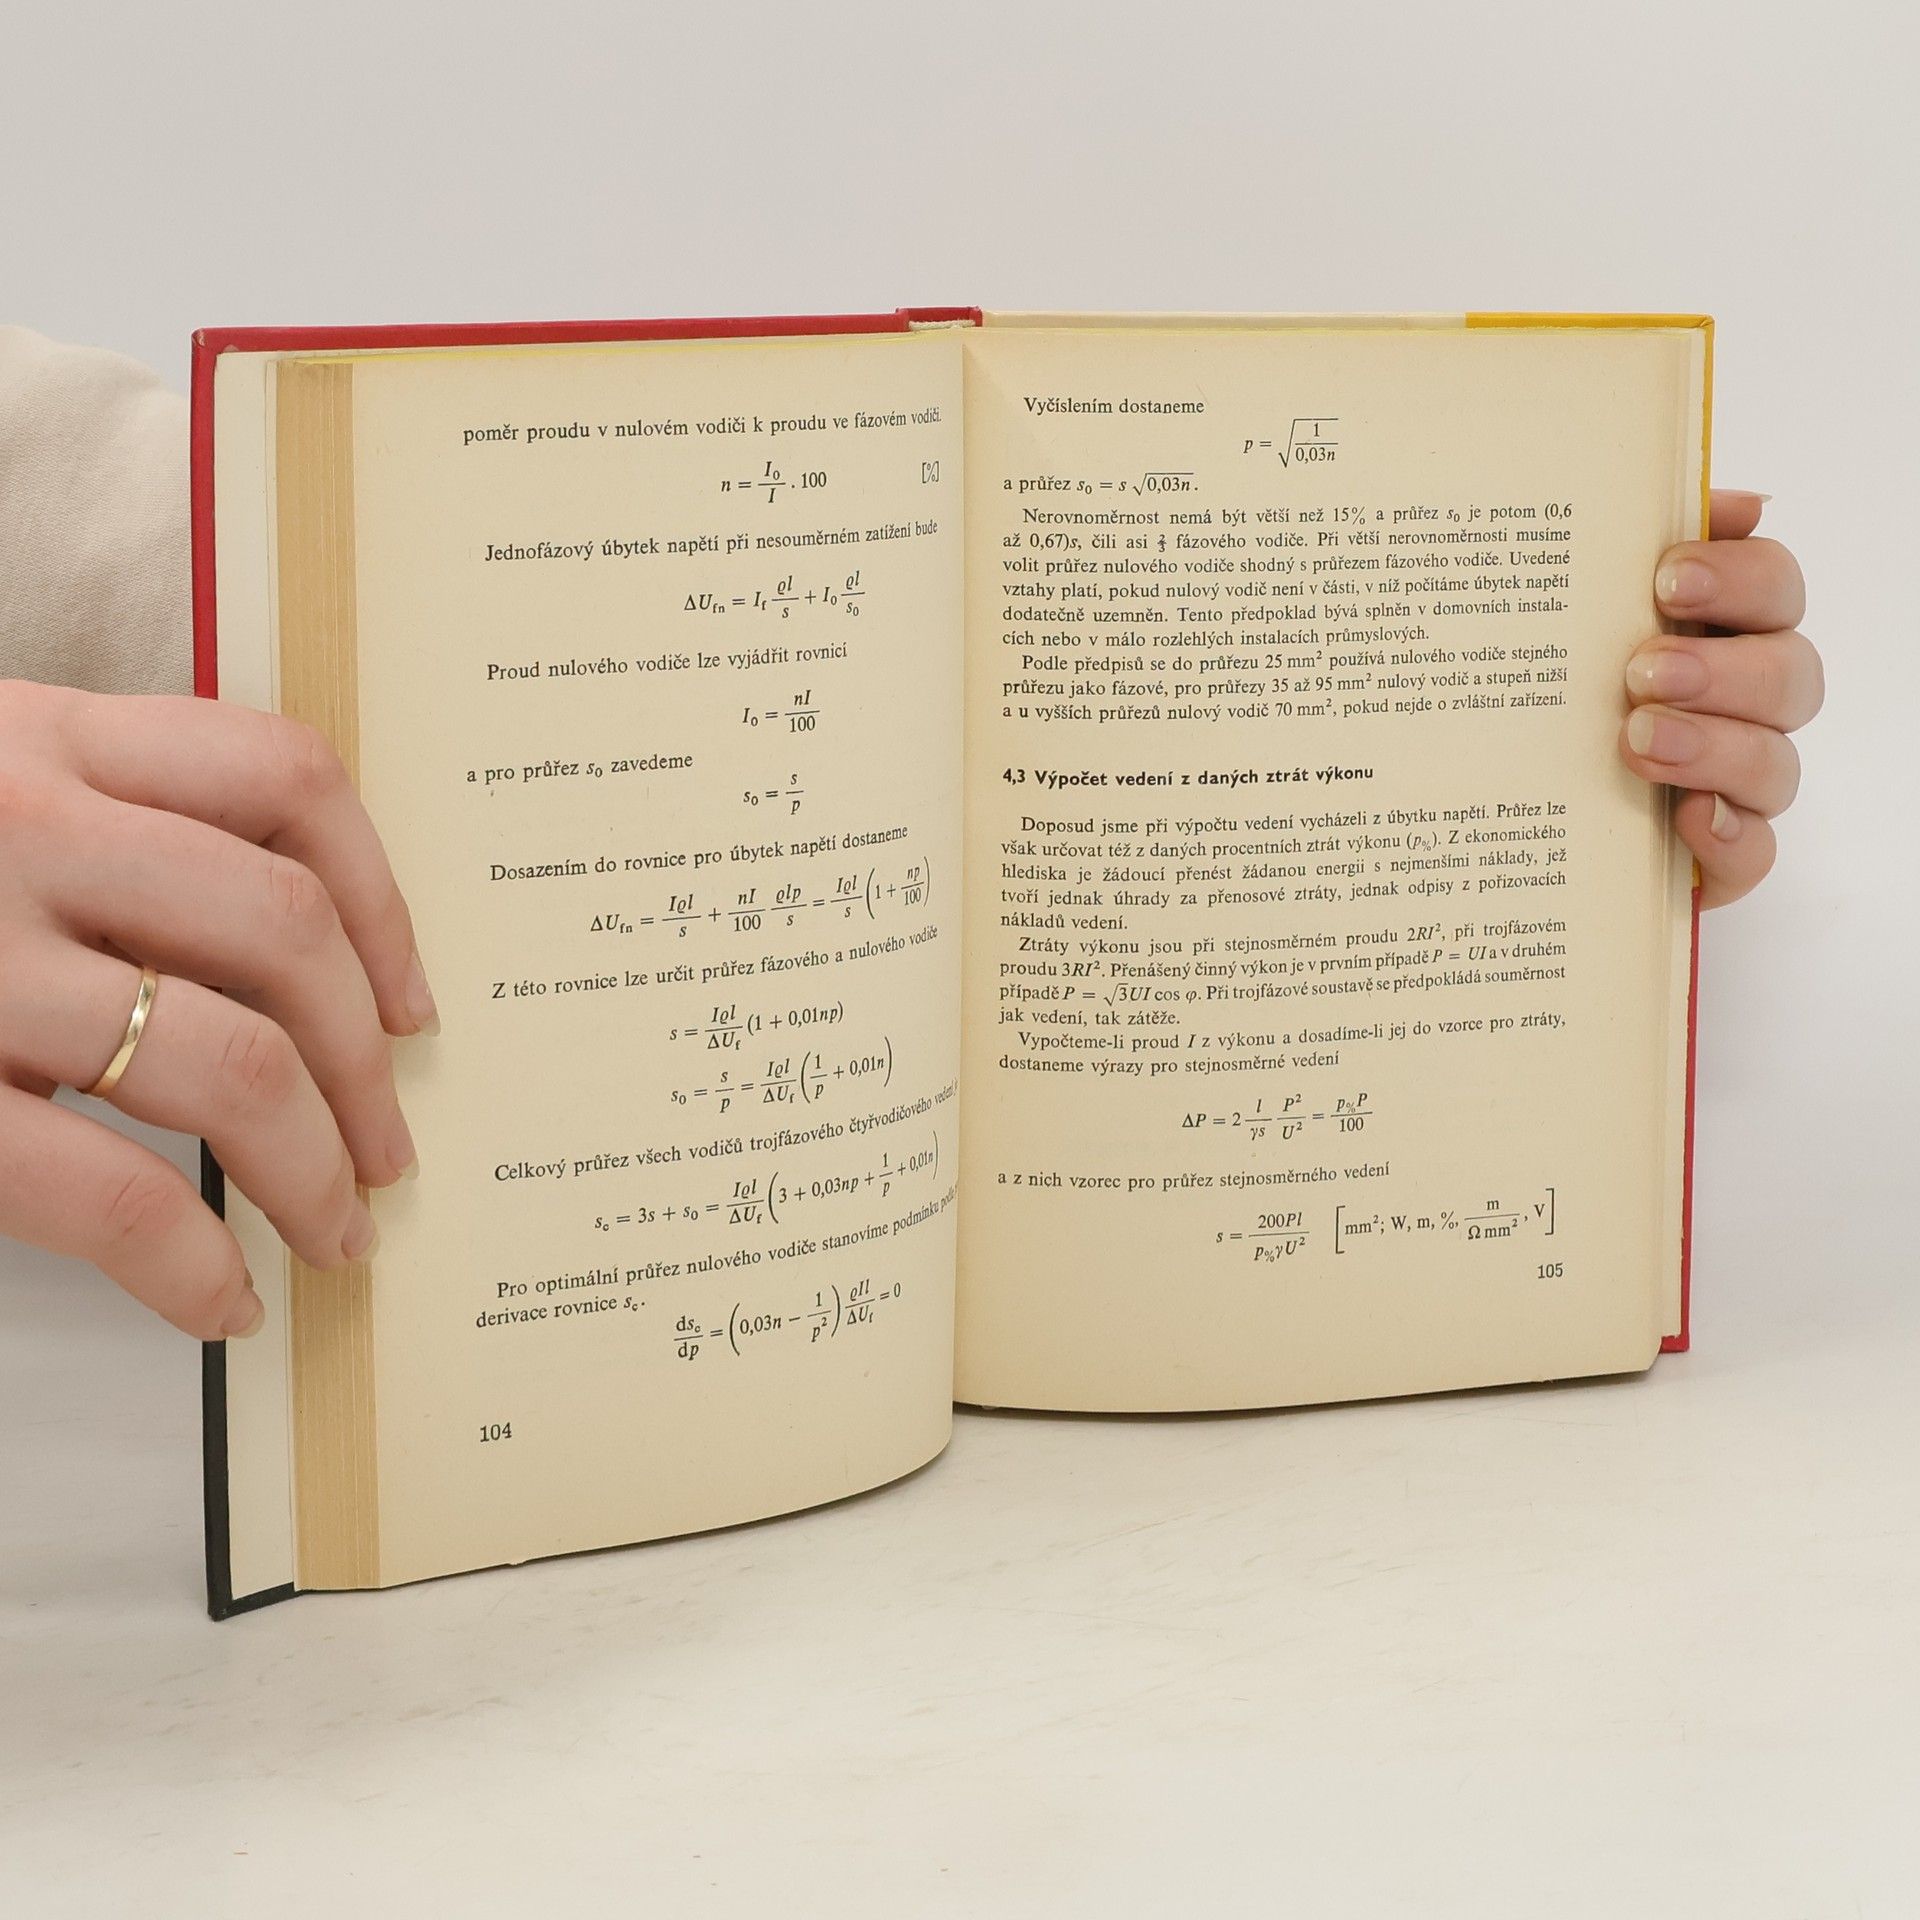 poměr proudu v nulovém vodiči k proudu ve fázovém vodiči.
n = I₀/I . 100 [%]
Jednofázový úbytek napětí při nesouměrném zatížení bude
ΔU_fn = I_f ϱl/s + I₀ ϱl/s₀
Proud nulového vodiče lze vyjádřit rovnicí
I₀ = nI/100
a pro průřez s₀ zavedeme
s₀ = s/p
Dosazením do rovnice pro úbytek napětí dostaneme
ΔU_fn = Iϱl/s + nI/100 ϱlp/s = Iϱl/s (1 + np/100)
Z této rovnice lze určit průřez fázového a nulového vodiče
s = Iϱl/ΔU_f (1 + 0,01np)
s₀ = s/p = Iϱl/ΔU_f (1/p + 0,01n)
Celkový průřez všech vodičů trojfázového čtyřvodičového vedení
s_c = 3s + s₀ = Iϱl/ΔU_f (3 + 0,03np + 1/p + 0,01n)
Pro optimální průřez nulového vodiče stanovíme podmínku podle
derivace rovnice s_c.
ds_c/dp = (0,03n − 1/p²) ϱIl/ΔU_f = 0
104
Vyčíslením dostaneme
p = √(1/0,03n)
a průřez s₀ = s √0,03n.
Nerovnoměrnost nemá být větší než 15% a průřez s₀ je potom (0,6
až 0,67)s, čili asi ⅔ fázového vodiče. Při větší nerovnoměrnosti musíme
volit průřez nulového vodiče shodný s průřezem fázového vodiče. Uvedené
vztahy platí, pokud nulový vodič není v části, v níž počítáme úbytek napětí
dodatečně uzemněn. Tento předpoklad bývá splněn v domovních instala-
cích nebo v málo rozlehlých instalacích průmyslových.
Podle předpisů se do průřezu 25 mm² používá nulového vodiče stejného
průřezu jako fázové, pro průřezy 35 až 95 mm² nulový vodič a stupeň nižší
a u vyšších průřezů nulový vodič 70 mm², pokud nejde o zvláštní zařízení.
4,3 Výpočet vedení z daných ztrát výkonu
Doposud jsme při výpočtu vedení vycházeli z úbytku napětí. Průřez lze
však určovat též z daných procentních ztrát výkonu (p%). Z ekonomického
hlediska je žádoucí přenést žádanou energii s nejmenšími náklady, jež
tvoří jednak úhrady za přenosové ztráty, jednak odpisy z pořizovacích
nákladů vedení.
Ztráty výkonu jsou při stejnosměrném proudu 2RI², při trojfázovém
proudu 3RI². Přenášený činný výkon je v prvním případě P = UI a v druhém
případě P = √3UI cos φ. Při trojfázové soustavě se předpokládá souměrnost
jak vedení, tak zátěže.
Vypočteme-li proud I z výkonu a dosadíme-li jej do vzorce pro ztráty,
dostaneme výrazy pro stejnosměrné vedení
ΔP = 2 l/γs P²/U² = p%P/100
a z nich vzorec pro průřez stejnosměrného vedení
s = 200Pl/p%γU² [mm²; W, m, %, m/Ω mm², V]
105